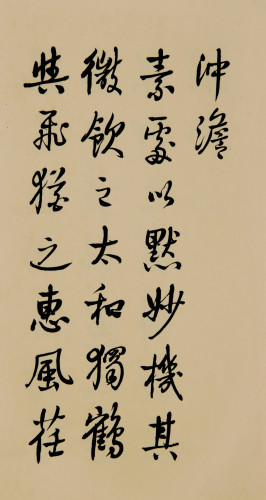 沖澹
素處以默妙機其
微飲之太和獨鶴
與飛猶之惠風荏